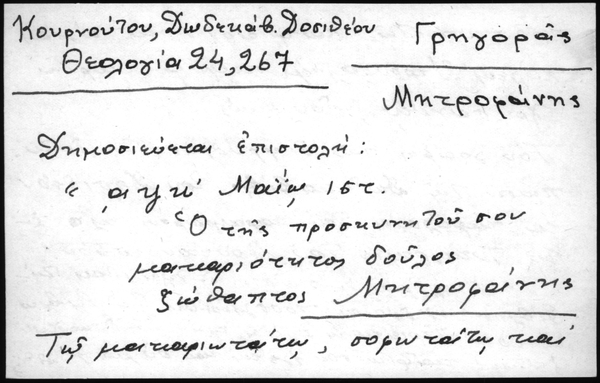 Κουρνούτου, Δωδεκάβ. Δοσιθέου
Θεολογία 24, 267
Γρηγορᾶς
Μητροφάνης
Δημοσιεύεται ἐπιστολή:
" αψκ' Μαΐῳ ιστ.
Ὁ τῆς προσκυνητοῦ σου
μακαριότητος δοῦλος
ζώθαπτος Μητροφάνης
Τῷ μακαριωτάτῳ, σοφωτάτῳ καί